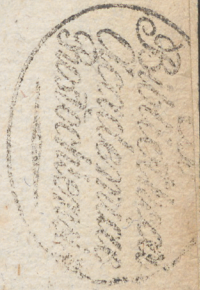 Bibliotheca
Academiae
Rostochiensis